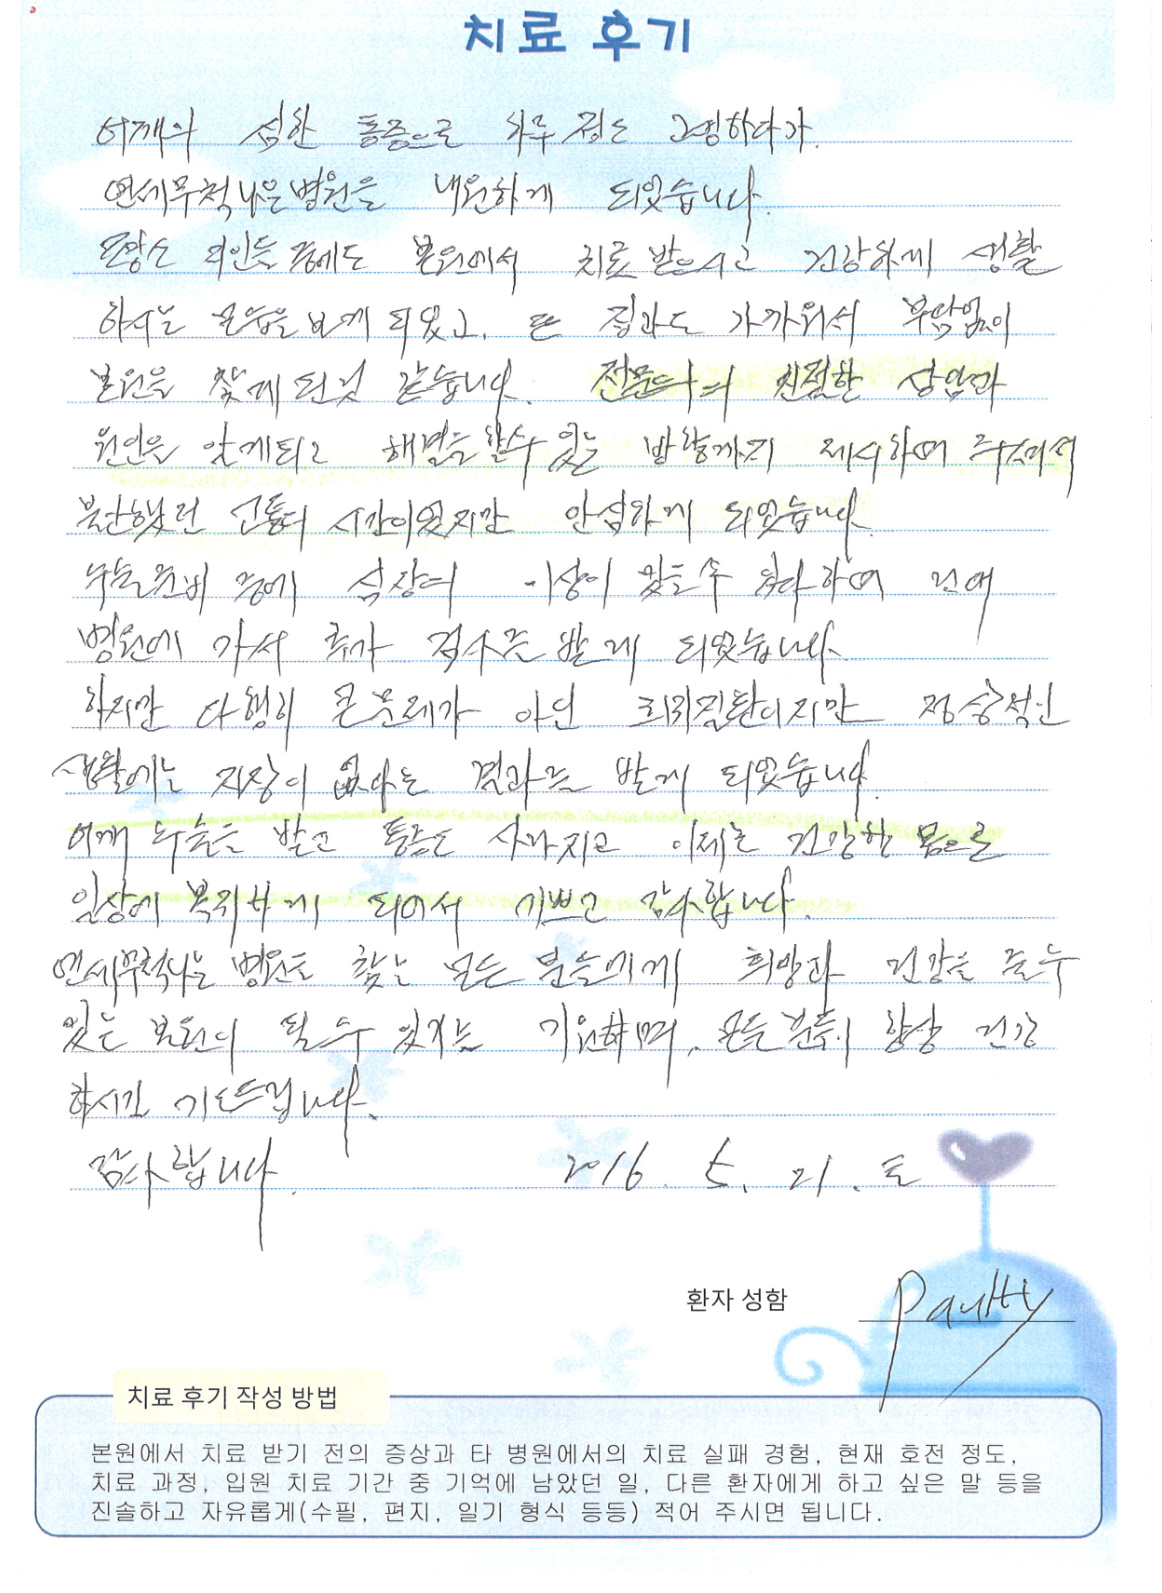 치료 후기
어깨의 심한 통증으로 하루 정도 고민하다가.
연세무척나은병원을 내원하게 되었습니다.
평상시 지인들 중에도 본원에서 치료 받으시고 건강하게 생활
하시는 모습을 보게 되었고, 또 집과도 가까워서 부담없이
본원을 찾게 된것 같습니다. 전문의의 친절한 상담과
원인을 알게되고 해결을 할수 있는 방향까지 제시하여 주셔서
불안했던 고통의 시간이었지만 안심하게 되었습니다.
수술준비 중에 심장에 이상이 있을수 있다하여 건대
병원에 가서 추가 검사를 받게 되었습니다.
하지만 다행히 큰문제가 아닌 희귀질환이지만 정상적인
생활에는 지장이 없다는 결과를 받게 되었습니다.
어깨 수술을 받고 통증도 사라지고 이제는 건강한 몸으로
일상에 복귀하게 되어서 기쁘고 감사합니다.
연세무척나은 병원을 찾는 모든 분들에게 희망과 건강을 줄수
있는 본원이 될수 있기를 기원하며, 모든 분들이 항상 건강
하시길 기도드립니다.
감사합니다. 2016. 5. 21. 토
환자 성함
치료 후기 작성 방법
본원에서 치료 받기 전의 증상과 타 병원에서의 치료 실패 경험, 현재 호전 정도,
치료 과정, 입원 치료 기간 중 기억에 남았던 일, 다른 환자에게 하고 싶은 말 등을
진솔하고 자유롭게(수필, 편지, 일기 형식 등등) 적어 주시면 됩니다.